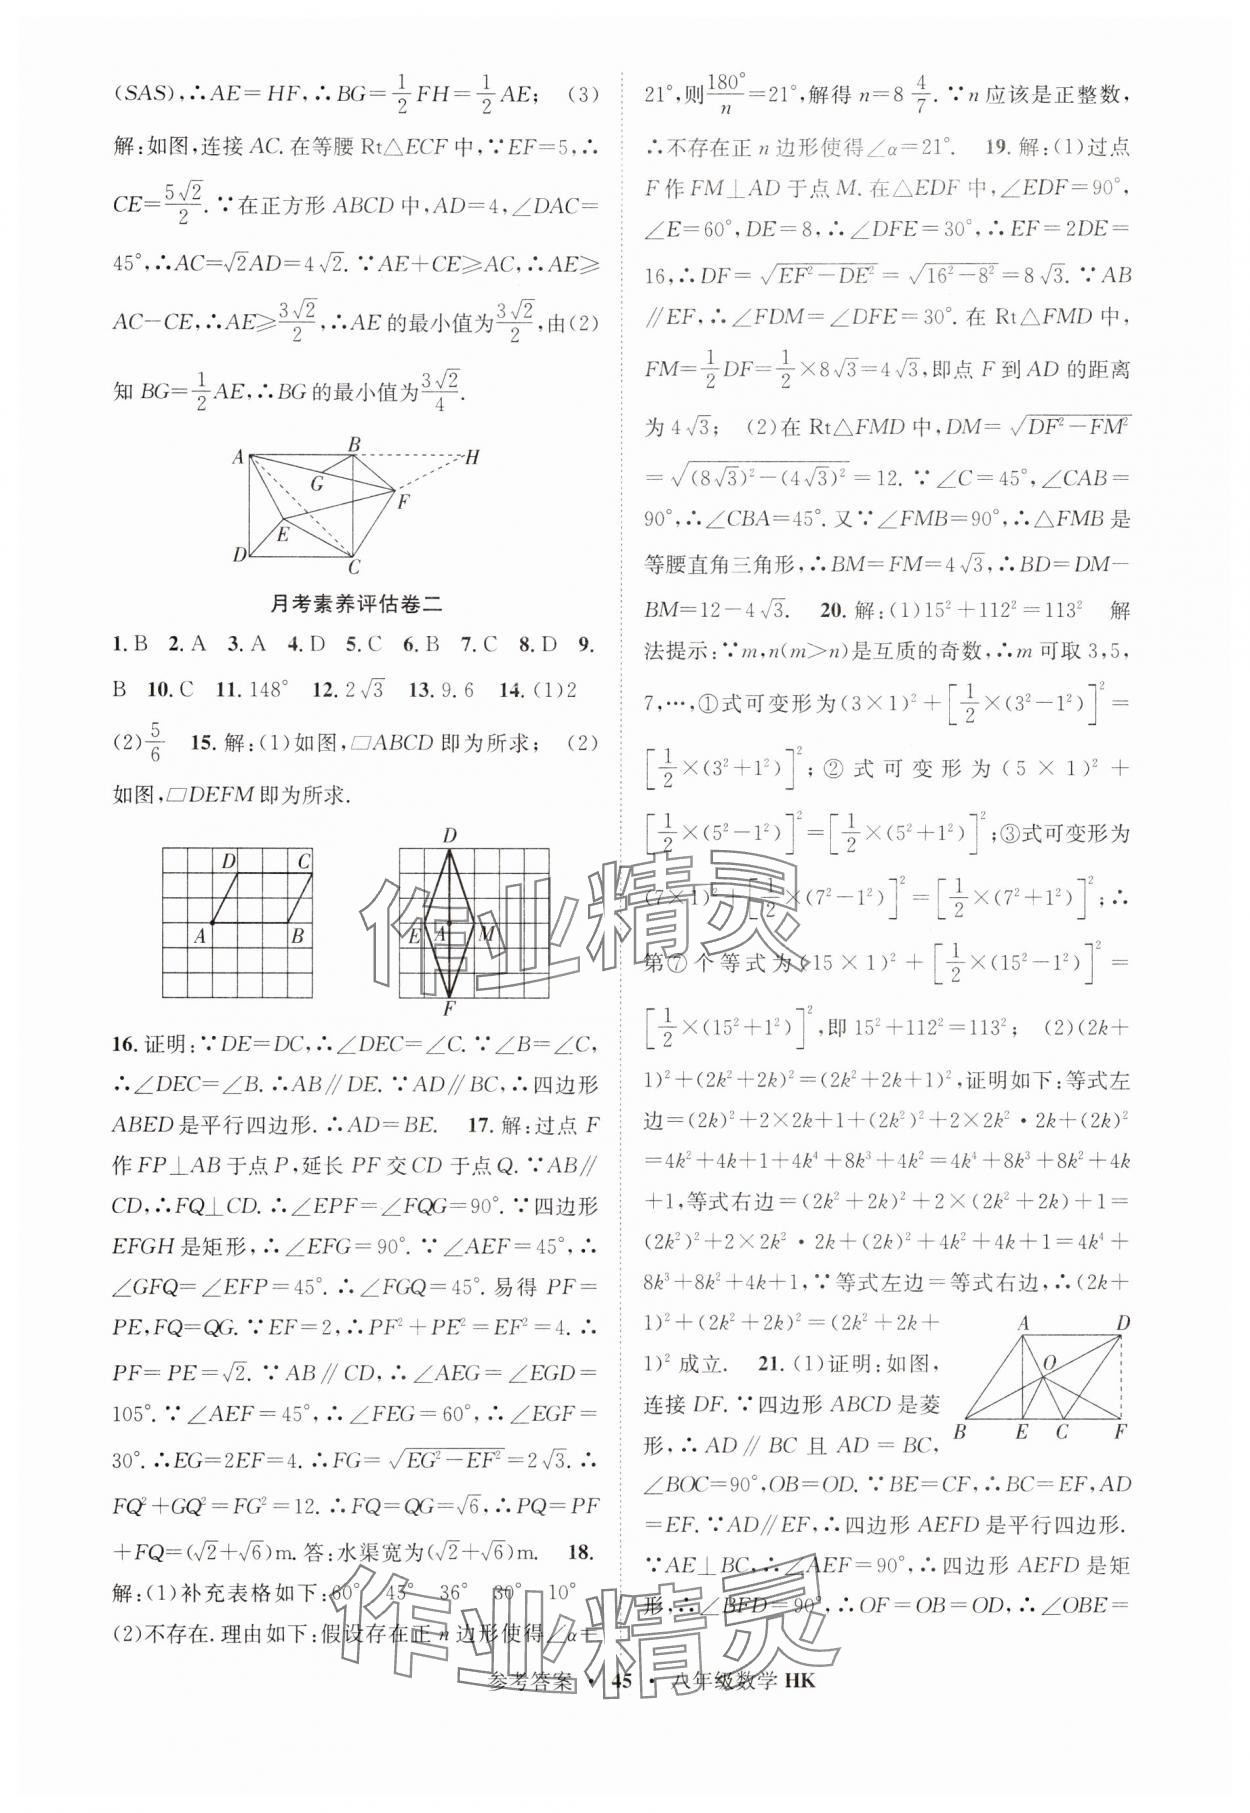 (SAS),∴AE=HF,∴BG=1/2 FH=1/2 AE; (3)
解:如图,连接 AC. 在等腰 Rt△ECF 中,∵EF=5,∴
CE=5√2/2. ∵在正方形 ABCD 中,AD=4,∠DAC=
45°,∴AC=√2AD=4√2. ∵AE+CE≥AC,∴AE≥
AC-CE,∴AE≥3√2/2,∴AE 的最小值为3√2/2,由(2)
知 BG=1/2 AE,∴BG 的最小值为3√2/4.
A B H
G
F
E
D C
月考素养评估卷二
1. B 2. A 3. A 4. D 5. C 6. B 7. C 8. D 9.
B 10. C 11. 148° 12. 2√3 13. 9.6 14. (1)2
(2)5/6 15. 解:(1)如图,▱ABCD 即为所求; (2)
如图,▱DEFM 即为所求.
D C
A B
D
E A M
F
16. 证明:∵DE=DC,∴∠DEC=∠C. ∵∠B=∠C,
∴∠DEC=∠B. ∴AB∥DE. ∵AD∥BC,∴四边形
ABED 是平行四边形. ∴AD=BE. 17. 解:过点 F
作 FP⊥AB 于点 P,延长 PF 交 CD 于点 Q. ∵AB∥
CD,∴FQ⊥CD. ∴∠EPF=∠FQG=90°. ∵四边形
EFGH 是矩形,∴∠EFG=90°. ∵∠AEF=45°,∴
∠GFQ=∠EFP=45°. ∴∠FGQ=45°. 易得 PF=
PE,FQ=QG. ∵EF=2,∴PF²+PE²=EF²=4. ∴
PF=PE=√2. ∵AB∥CD,∴∠AEG=∠EGD=
105°. ∵∠AEF=45°,∴∠FEG=60°,∴∠EGF=
30°. ∴EG=2EF=4. ∴FG=√(EG²-EF²)=2√3. ∴
FQ²+GQ²=FG²=12. ∴FQ=QG=√6,∴PQ=PF
+FQ=(√2+√6)m. 答:水渠宽为(√2+√6)m. 18.
解:(1)补充表格如下:60° 45° 36° 30° 10°
(2)不存在. 理由如下:假设存在正 n 边形使得∠α=
21°,则180°/n=21°,解得 n=8 4/7. ∵n 应该是正整数,
∴不存在正 n 边形使得∠α=21°. 19. 解:(1)过点
F 作 FM⊥AD 于点 M. 在△EDF 中,∠EDF=90°,
∠E=60°,DE=8,∴∠DFE=30°,∴EF=2DE=
16,∴DF=√(EF²-DE²)=√(16²-8²)=8√3. ∵AB
∥EF,∴∠FDM=∠DFE=30°. 在 Rt△FMD 中,
FM=1/2 DF=1/2×8√3=4√3,即点 F 到 AD 的距离
为 4√3; (2)在 Rt△FMD 中,DM=√(DF²-FM²)
=√((8√3)²-(4√3)²)=12. ∵∠C=45°,∠CAB=
90°,∴∠CBA=45°. 又∵∠FMB=90°,∴△FMB 是
等腰直角三角形,∴BM=FM=4√3,∴BD=DM-
BM=12-4√3. 20. 解:(1)15²+112²=113² 解
法提示:∵m,n(m>n)是互质的奇数,∴m 可取 3,5,
7,…,①式可变形为(3×1)²+[1/2×(3²-1²)]²=
[1/2×(3²+1²)]²;②式可变形为(5×1)²+
[1/2×(5²-1²)]²=[1/2×(5²+1²)]²;③式可变形为
(7×1)²+[1/2×(7²-1²)]²=[1/2×(7²+1²)]²;∴
第⑦个等式为(15×1)²+[1/2×(15²-1²)]²=
[1/2×(15²+1²)]²,即 15²+112²=113²; (2)(2k+
1)²+(2k²+2k)²=(2k²+2k+1)²,证明如下:等式左
边=(2k)²+2×2k+1+(2k²)²+2×2k²·2k+(2k)²
=4k²+4k+1+4k⁴+8k³+4k²=4k⁴+8k³+8k²+4k
+1,等式右边=(2k²+2k)²+2×(2k²+2k)+1=
(2k²)²+2×2k²·2k+(2k)²+4k²+4k+1=4k⁴+
8k³+8k²+4k+1,∵等式左边=等式右边,∴(2k+
1)²+(2k²+2k)²=(2k²+2k+
1)²成立. 21. (1)证明:如图,
连接 DF. ∵四边形 ABCD 是菱
形,∴AD∥BC 且 AD=BC,
A D
O
B E C F
∠BOC=90°,OB=OD. ∵BE=CF,∴BC=EF,AD
=EF. ∵AD∥EF,∴四边形 AEFD 是平行四边形.
∵AE⊥BC,∴∠AEF=90°,∴四边形 AEFD 是矩
形,∴∠BFD=90°,∴OF=OB=OD,∴∠OBE=
作业精灵
作业精灵
参考答案 · 45 · 八年级数学 HK